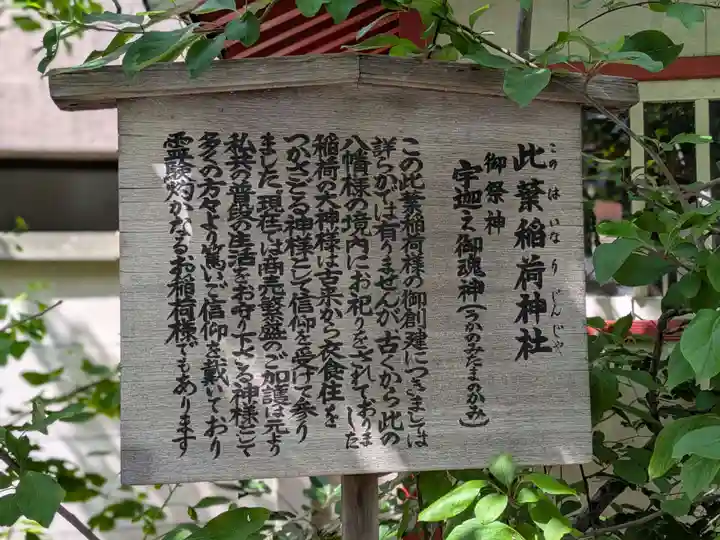 此葉稲荷神社
このはいなりじんじゃ
御祭神
宇迦之御魂神(うかのみたまのかみ)
この此葉稲荷様の御創建につきましては
詳らかでは有りませんが古くから此の
八幡様の境内にお祀りをされておりました
稲荷の大神様は古来から衣食住を
つかさどる神様として信仰を受けて参り
ました現在は商売繁盛のご加護は元より
私共の普段の生活をお守り下さる神様として
多くの方々より篤いご信仰を戴いており
霊験灼かなるお稲荷様でもあります